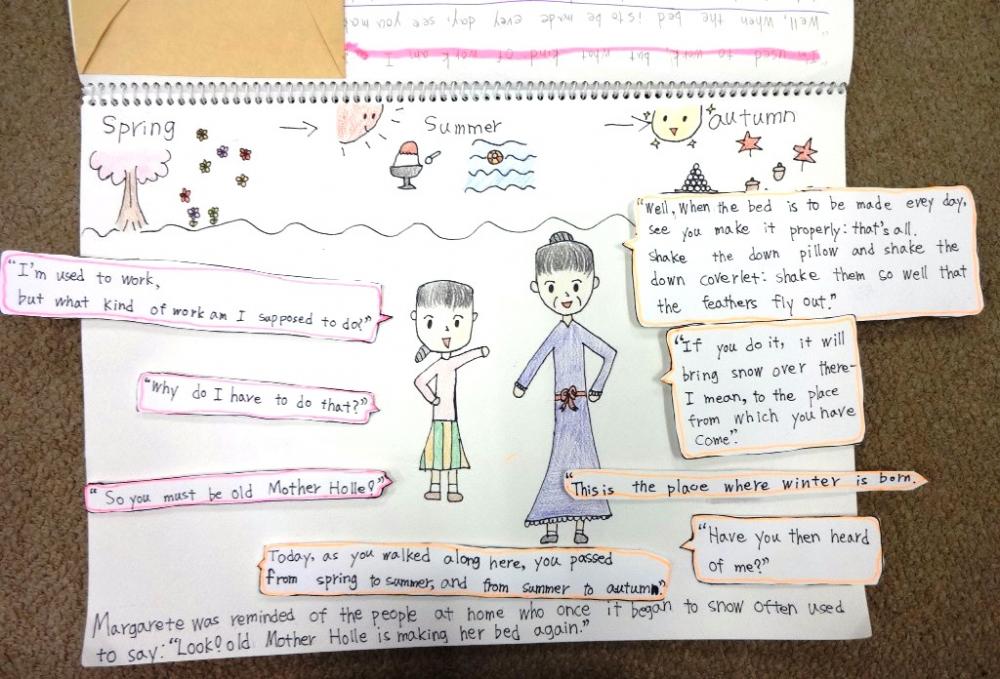 I'm used to work, but what kind of work am I
"Well, when the bed is to be made every day, see you
Spring
Summer
autumn
"Well, when the bed is to be made every day,
see you make it properly: that's all.
shake the down pillow and shake the
down coverlet: shake them so well that
the feathers fly out."
"I'm used to work,
but what kind of work am I supposed to do?"
"If you do it, it will
bring snow over there-
I mean, to the place
from which you have
come".
"why do I have to do that?"
"So you must be old Mother Holle?"
"This is the place where winter is born.
"Have you then heard
of me?"
Today, as you walked along here, you passed
from spring to summer, and from summer to autumn."
Margarete was reminded of the people at home who once it began to snow often used
to say: "Look! old Mother Holle is making her bed again."